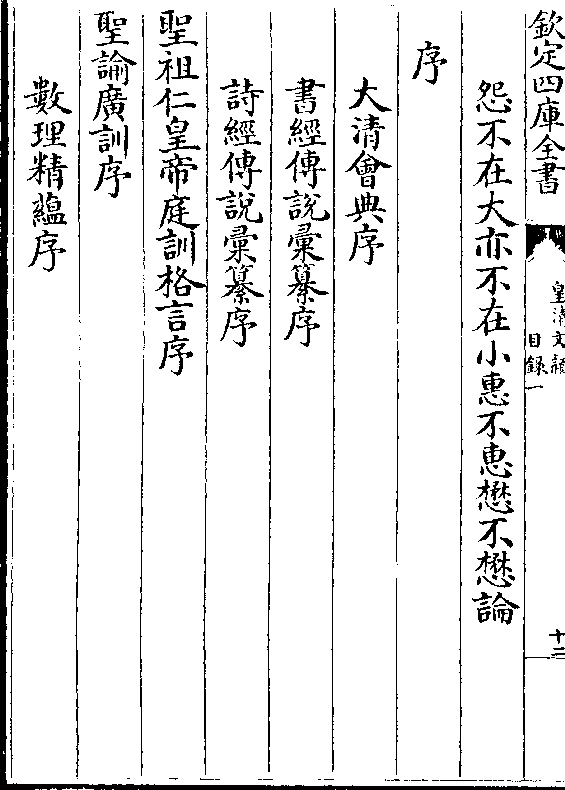 欽定四庫全書
皇清文穎
目録一
十二
怨不在大亦不在小惠不惠懋不懋論
序
大清會典序
書經傳說彚纂序
詩經傳說彚纂序
聖祖仁皇帝庭訓格言序
聖諭廣訓序
數理精蘊序